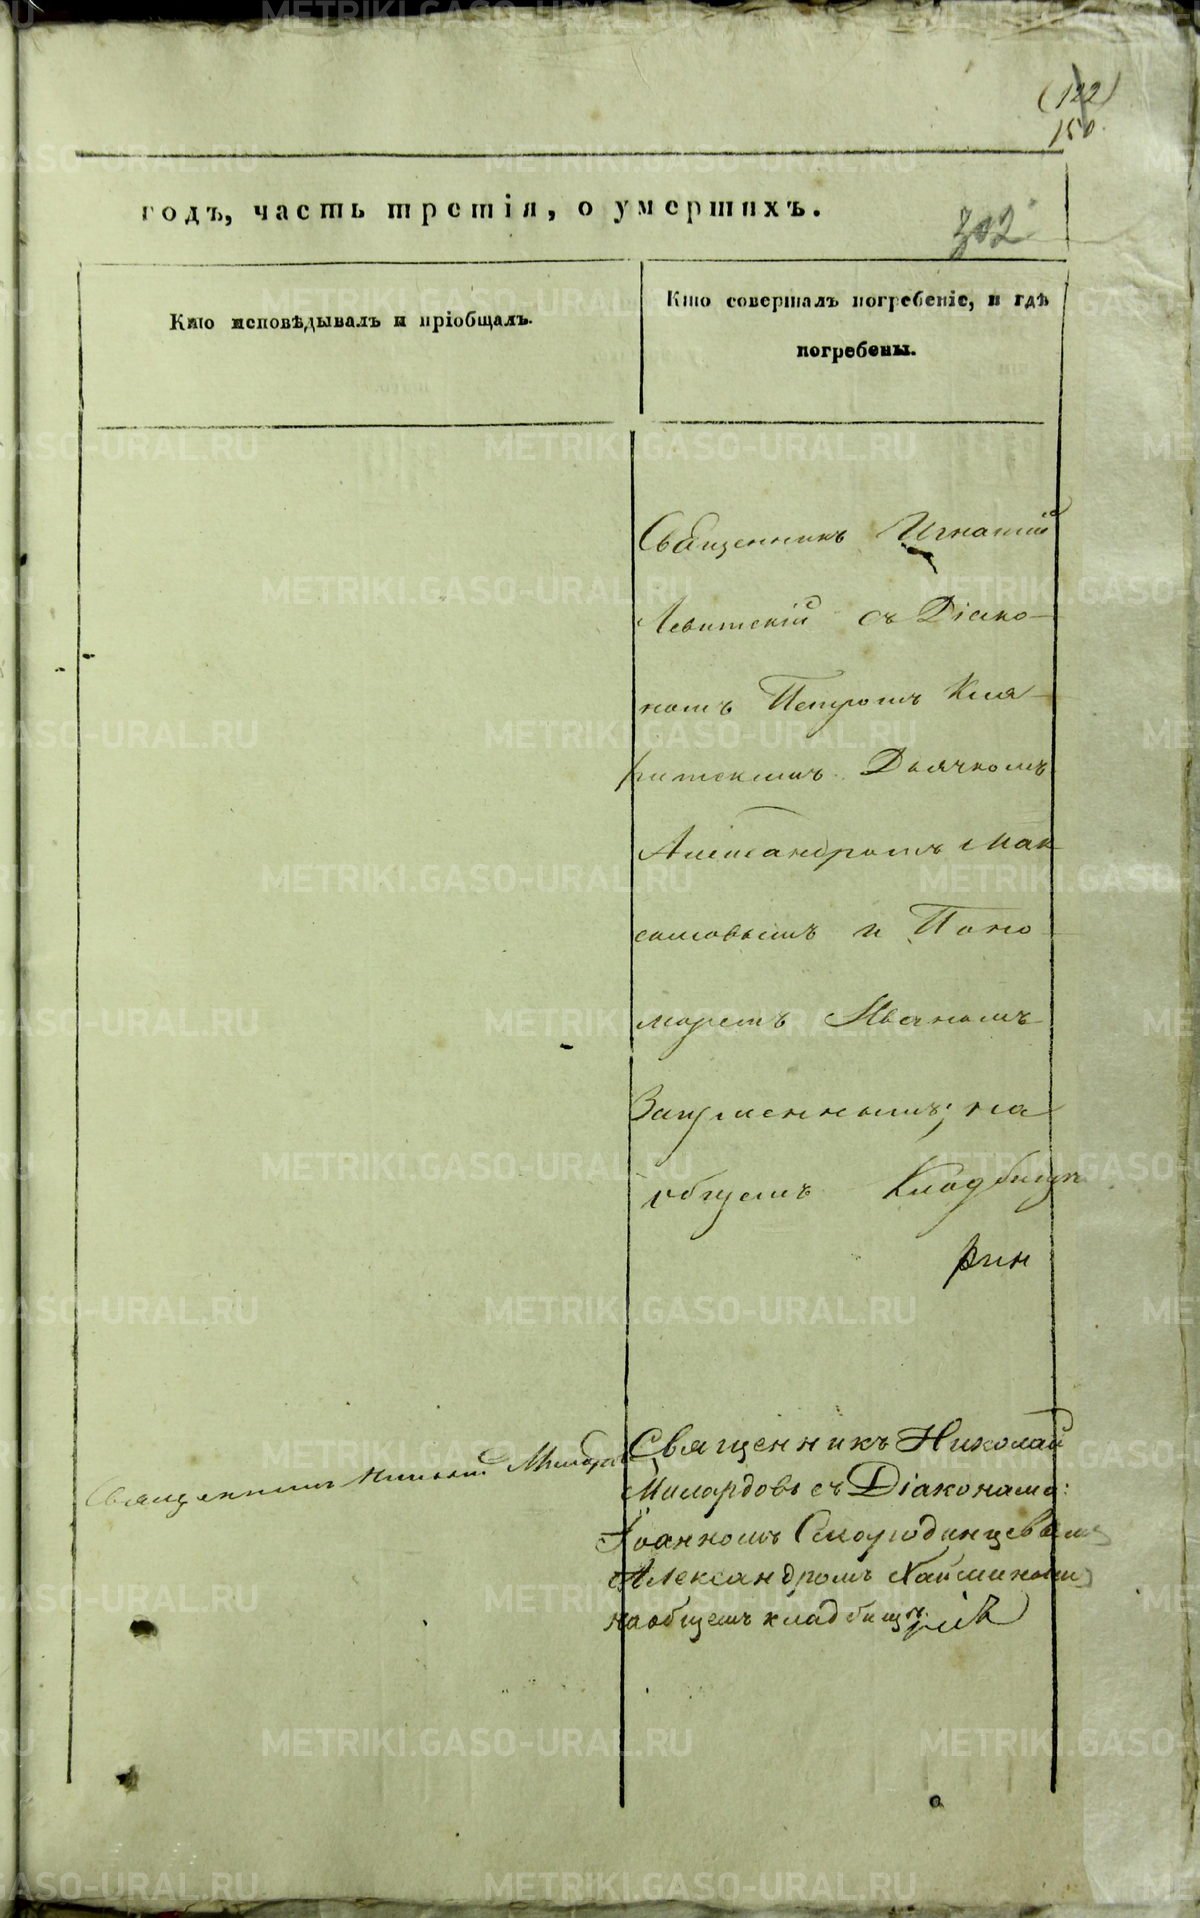 (122)
150
годъ, часть третія, о умершихъ.
302
Кто исповѣдывалъ и пріобщалъ.
Кто совершалъ погребеніе, и гдѣ
погребены.
Священникъ Игнатій
Левитскій съ Діако-
номъ Петромъ Кля-
ритскимъ Дьячкомъ
Александромъ Мак
симовымъ и Поно
маремъ Иваномъ
на
общемъ Кладбищѣ
Священникъ Николай
Священникъ Николай
Милордовъ съ Діаконама:
Іоанномъ Смородинцевымъ
Александромъ
на общемъ кладбищѣ.
METRIKI.GASO-URAL.RU